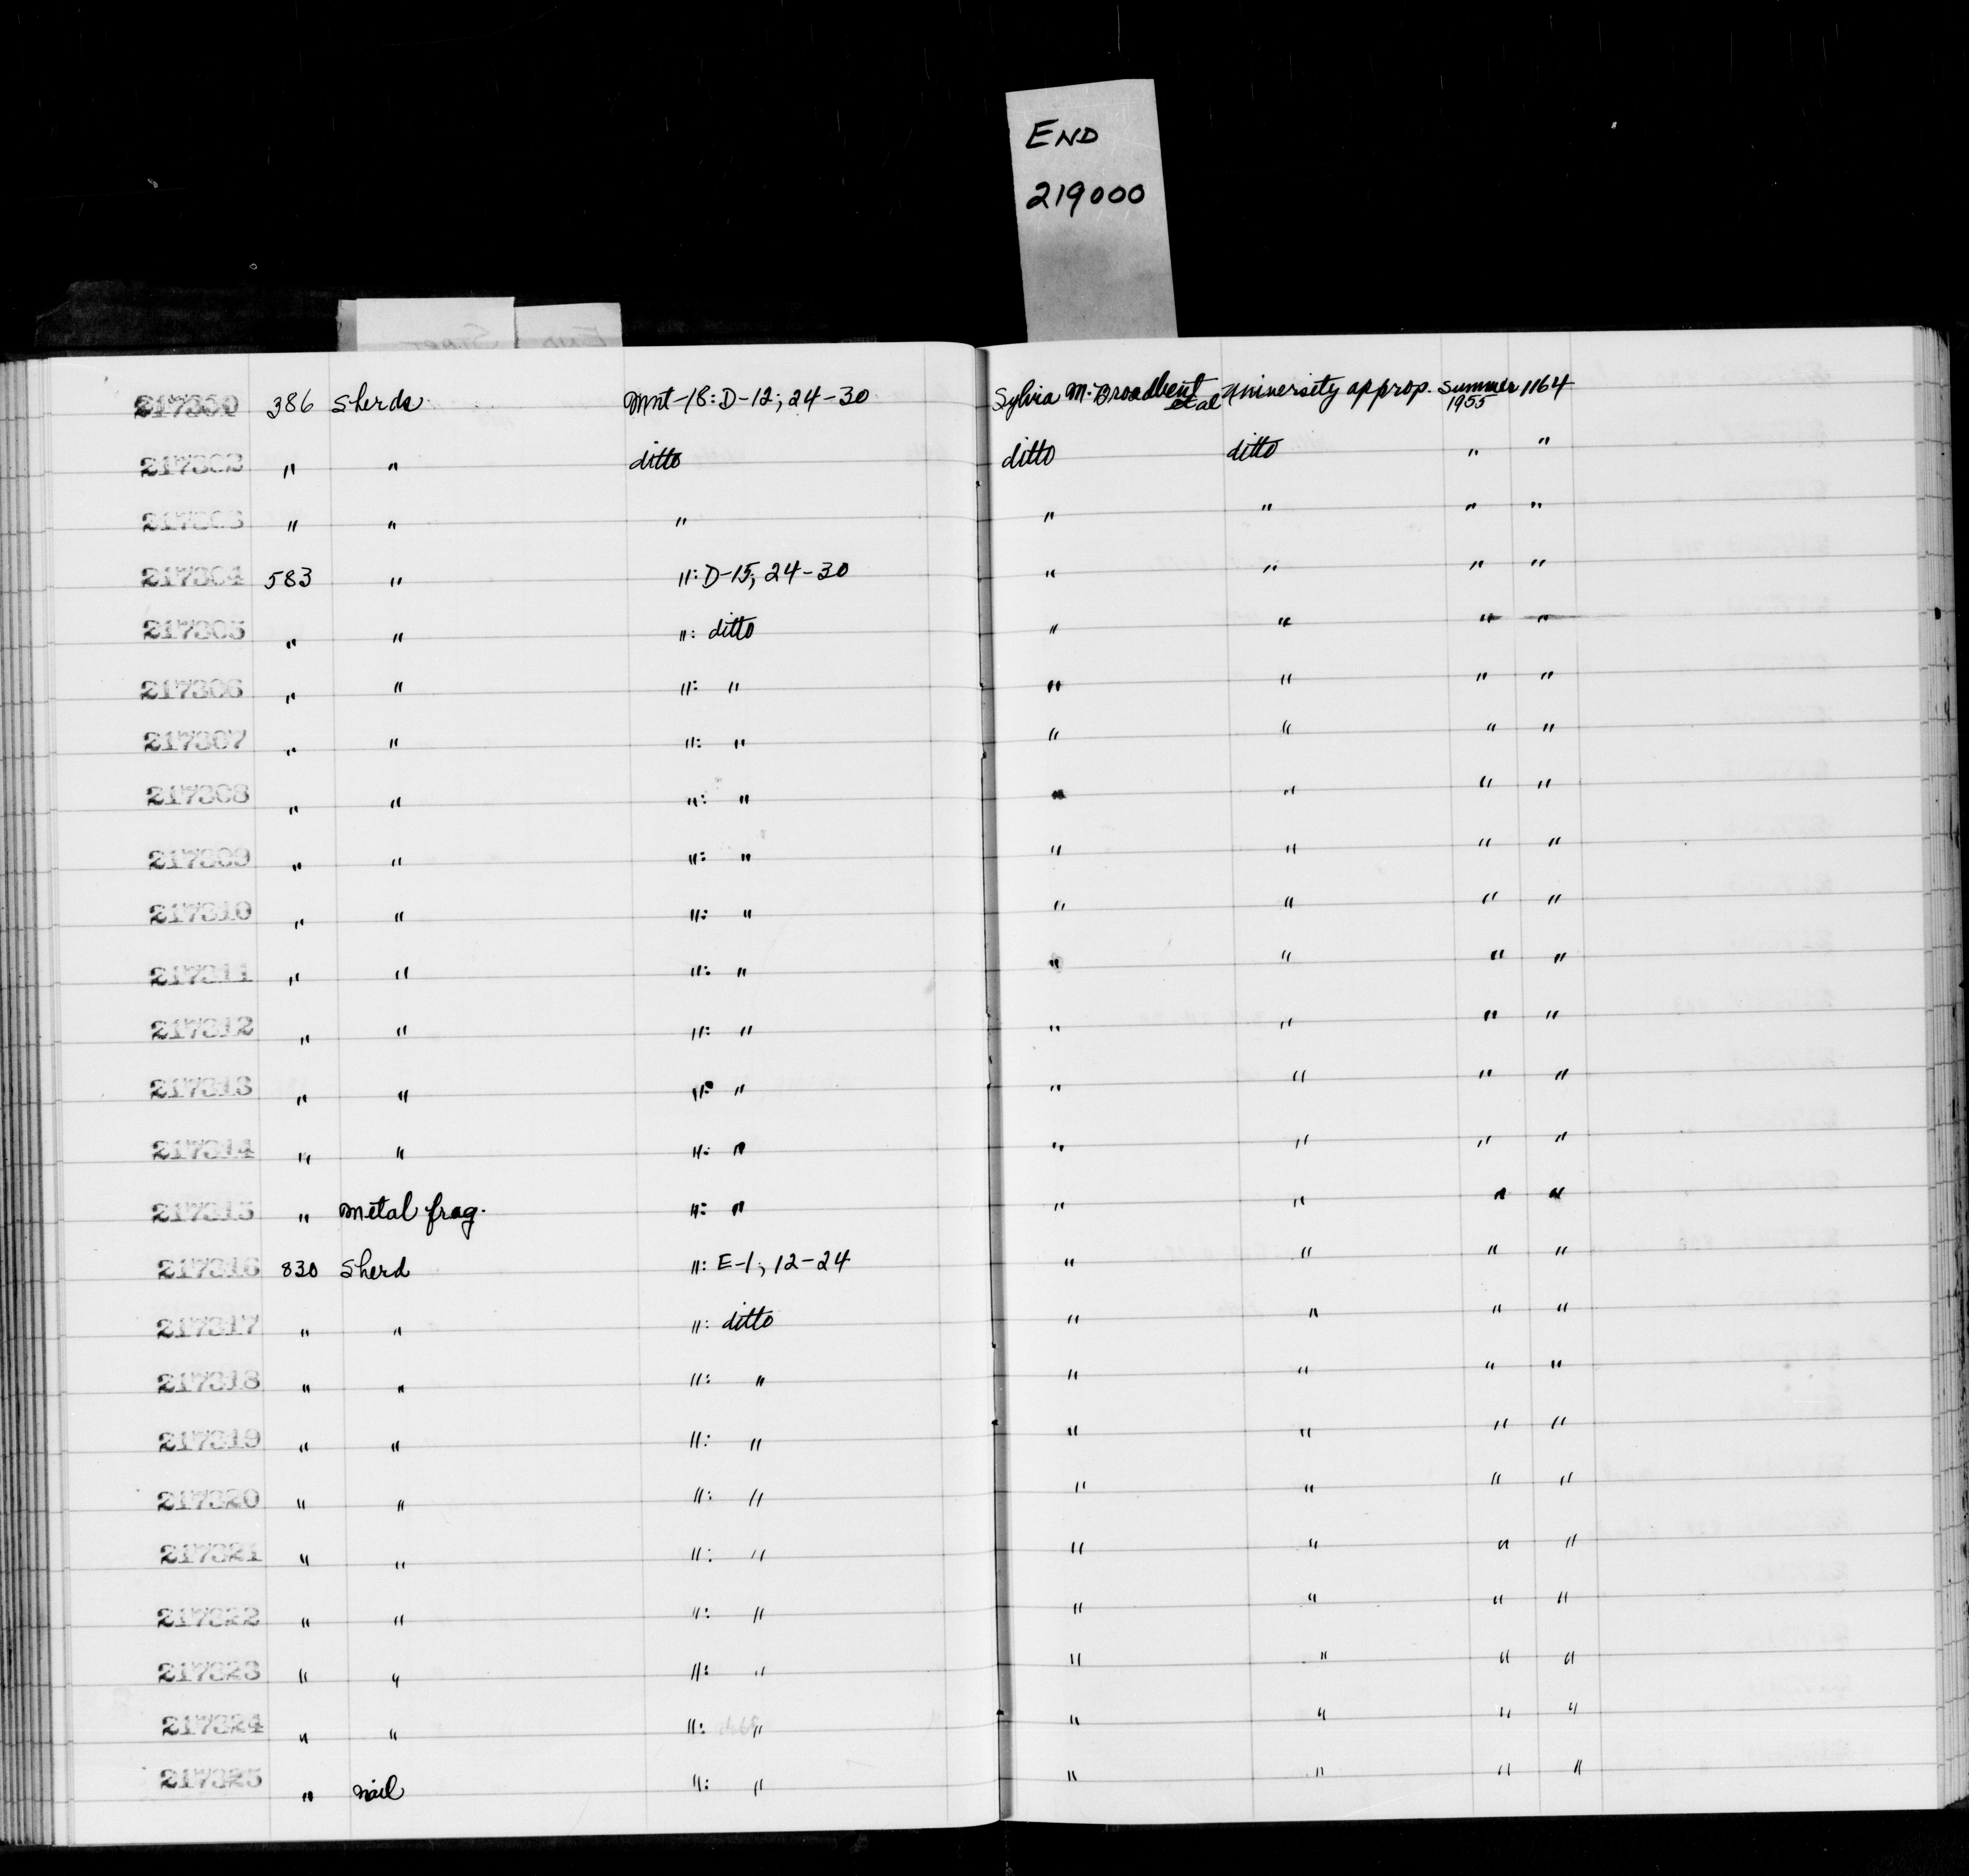 END
219000
386 Sherds Mnt-18: D-12; 24-30 Sylvia M. Broadbent et al University approp. Summer 1955 1164
217302 " " ditto ditto ditto " "
217303 " " " " " " "
217304 583 " ": D-15; 24-30 " " " "
217305 " " ": ditto " " " "
217306 " " ": " " " " "
217307 " " ": " " " " "
217308 " " ": " " " " "
217309 " " ": " " " " "
217310 " " ": " " " " "
217311 " " ": " " " " "
217312 " " ": " " " " "
217313 " " ": " " " " "
217314 " " ": " " " " "
217315 " Metal frag. ": " " " " "
217316 830 Sherd ": E-1; 12-24 " " " "
217317 " " ": ditto " " " "
217318 " " ": " " " " "
217319 " " ": " " " " "
217320 " " ": " " " " "
217321 " " ": " " " " "
217322 " " ": " " " " "
217323 " " ": " " " " "
217324 " " ": " " " " "
217325 " nail ": " " " " "